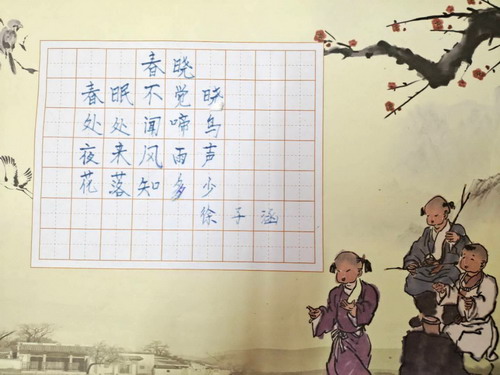 春晓
春眠不觉晓
处处闻啼鸟
夜来风雨声
花落知多少
徐子涵